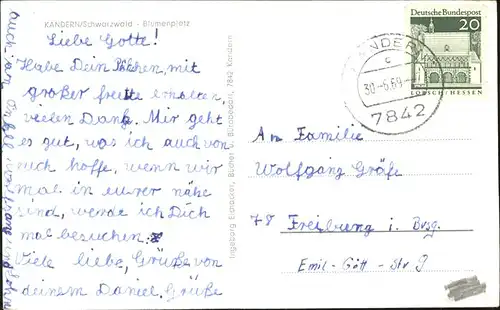 KANDERN/Schwarzwald - Blumenplatz
Liebe Gotte!
Habe Dein Päckchen, mit
großer freude erhalten,
vielen Dank. Mir geht
es gut, was ich auch von
euch hoffe, wenn wir
mal in eurer nähe
sind, werde ich Dich
mal besuchen.
Viele liebe, Grüße von
deinem Daniel. Grüße
auch an
Ingeborg Eichacker, Bücher u. Bürobedarf, 7842 Kandern
Deutsche Bundespost
20
LORSCH/HESSEN
KANDERN
c
30.-6.69
7842
An Familie
Wolfgang Gräfe
78 Freiburg i. Brsg.
Emil-Gött-Str 9